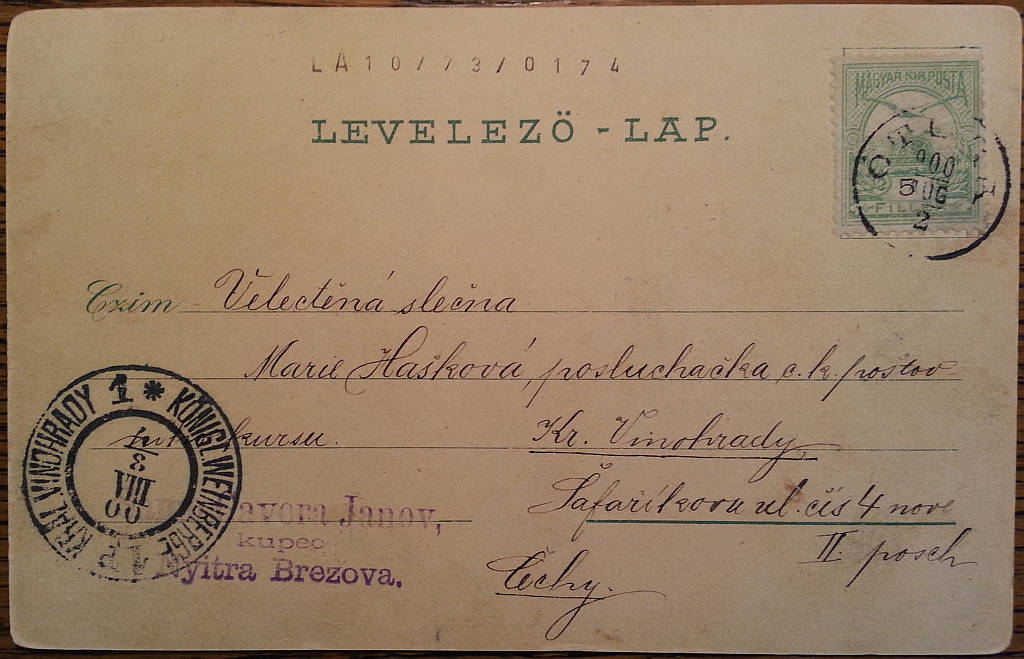 LA10/73/0174
LEVELEZŐ-LAP.
MAGYAR KIR. POSTA
900
AUG
2
5
FILL
Czim Velectěná slečna
Marie Hašková, posluchačka c. k. poštov
kursu. Kr. Vinohrady
Šafaříkova ul. čís 4 nové
II. posch
Čechy.
KRÁL. VINOHRADY 1 * KÖNIGL. WEINBERGE 1
3
VIII
00
avora Janov,
kupec
Nyitra Brezova.